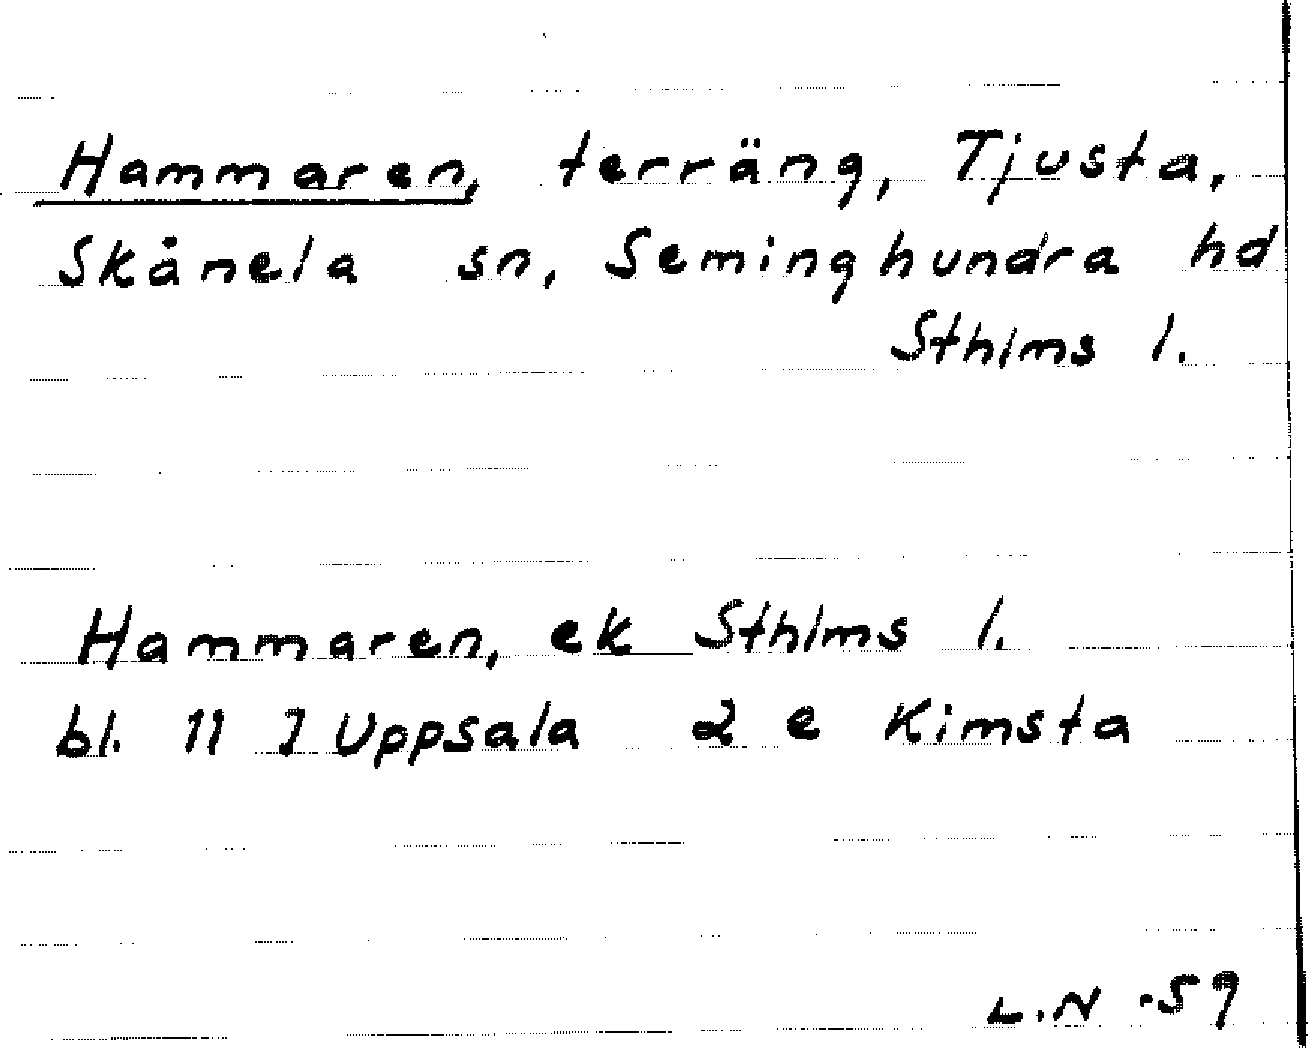 Hammaren, terräng, Tjusta,
Skånela sn, Seminghundra hd
Sthlms l.
Hammaren, ek Sthlms l.
bl. 11 I Uppsala 2 e Kimsta
L.N -59